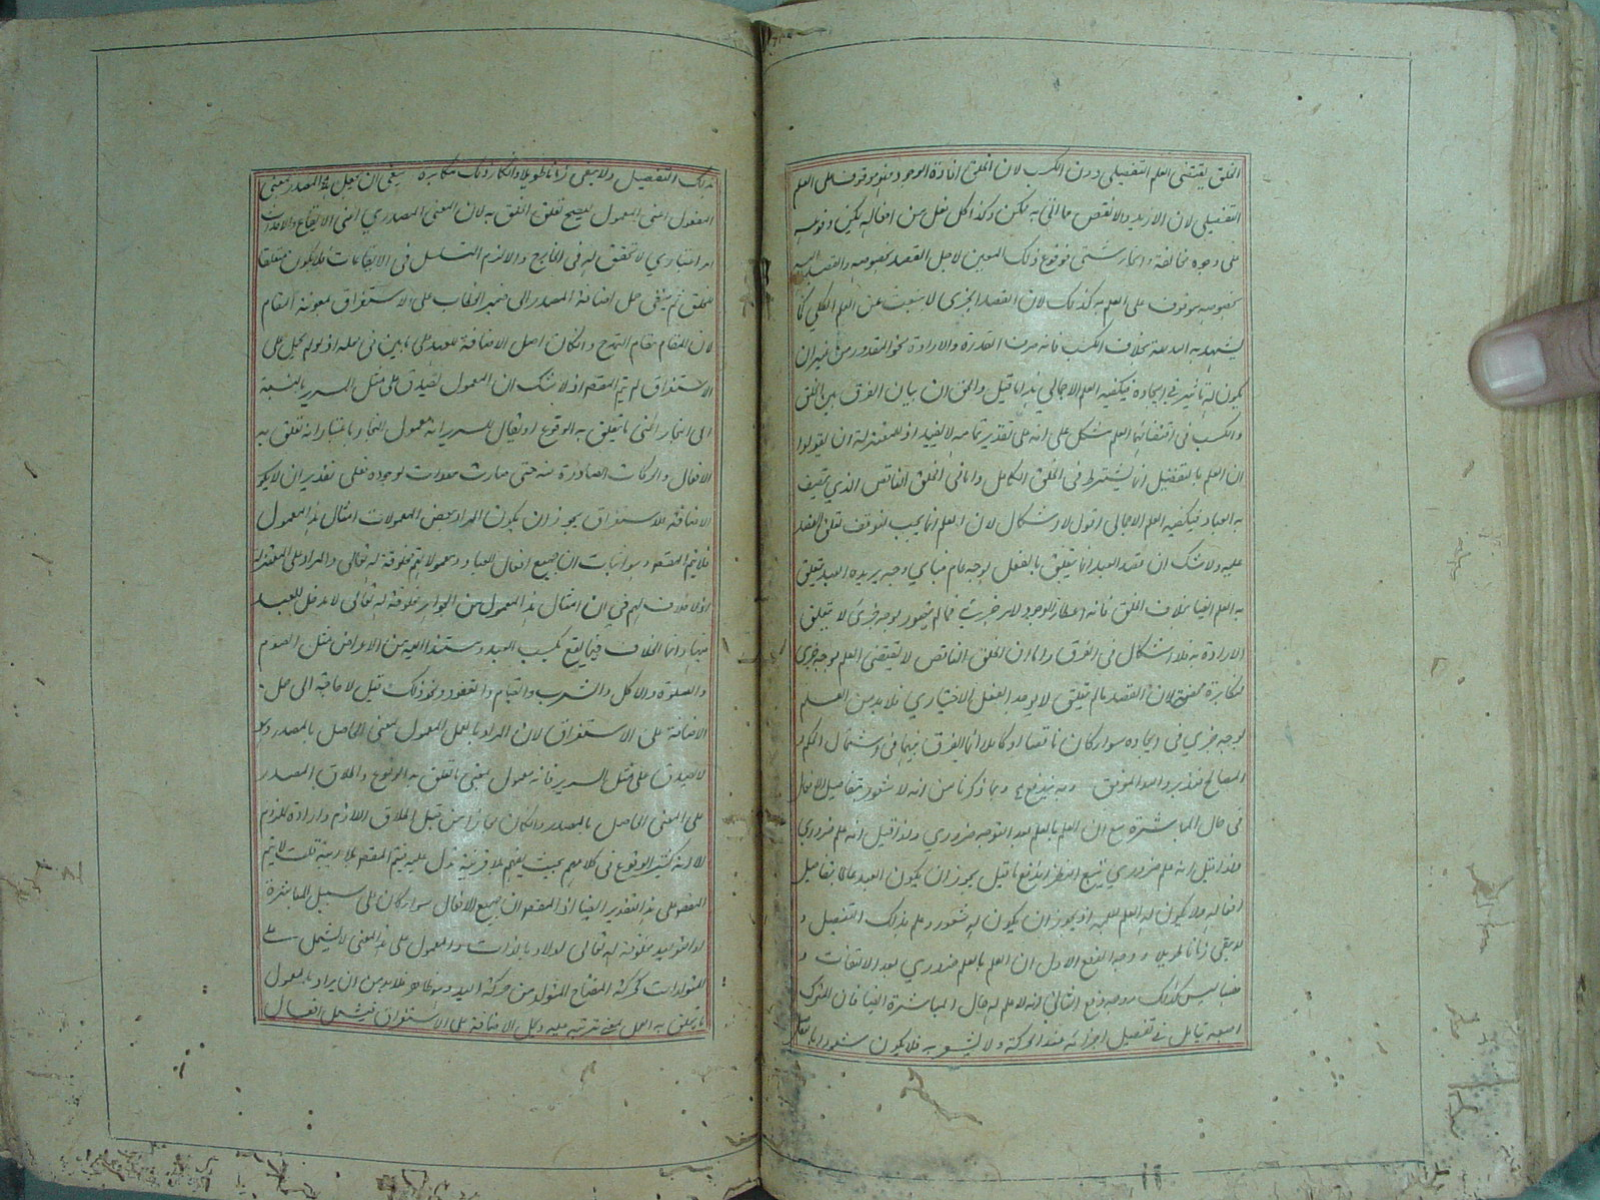 الخلق يقتضى العلم التفصيلى دون الكسب لان الخلق افادة الوجود وهو موقوف على العلم
التفصيلى لان الازيد والانقص مما اتى به ممكن وكذا كل فعل من افعاله يمكن وقوعه
على وجوه مختلفة وانحاء شتى فوقوع ذلك المعين لاجل القصد بخصوصه والقصد اليه
بخصوصه موقوف على العلم به كذلك لان القصد الجزئى لا ينبعث عن العلم الكلى كما
يشهد به البديهة بخلاف الكسب فانه صرف القدرة والارادة نحو المقدور من غير ان
يكون له تاثير فى ايجاده فيكفيه العلم الاجمالى هذا ما قيل والحق ان بيان الفرق بين الخلق
والكسب فى اقتضائهما العلم مشكل على انه على تقدير تمامه لا يفيد اذ للمعتزلة ان يقولوا
ان العلم بالتفصيل انما يشترط فى الخلق الكامل واما فى الخلق الناقص الذي يتصف
به العباد فيكفيه العلم الاجمالى اقول لا اشكال لان العلم انما يجب لتوقف تعلق القصد
عليه ولا شك ان قصد العبد انما يتعلق بالفعل بوجه عام فباي وجه يريده العبد يتعلق
به العلم ايضا بخلاف الخلق فانه اعطاء الوجود لامر جزئى فما لم يتصور بوجه جزئى لا يتعلق
الارادة به فلا اشكال فى الفرق واما ان الخلق الناقص لا يقتضى العلم بوجه جزئى
فمكابرة لان القصد مالم يتعلق لا يوجد الفعل الاختياري فلا بد من العلم
بوجه جزئي فى ايجاده سواء كان ناقصا او كاملا انما الفرق بينهما فى اشتمال الحكم و
المصالح فتدبر والله الموفق وبه يندفع وبما ذكرنا من انه لا شعور بتفاصيل الافعال
فى حال المباشرة مع ان العلم بالعلم بعد التوجه ضروري ولذا قيل انه علم ضروري
يتبع النظر اندفع ما قيل يجوز ان يكون العبد عالما بتفاصيل
افعاله ولا يكون له العلم بالعلم اذ يجوز ان يكون له شعور وعلم بذلك التفصيل و
لا يبقى زمانا طويلا ووجه الدفع الاول ان العلم بالعلم ضروري بعد الالتفات و
فيما ليس كذلك ووجه دفع الثانى انه لا علم له حال المباشرة ايضا فان المحرك
اصبعه يتامل فى تفصيل اجزائه عند الحركة ولا يشعر به فلا يكون شعورا بالفعل
بذلك التفصيل ولا يبقى زمانا طويلا وانكار ذلك مكابرة ينبغى ان يجعل المصدر بمعنى
المفعول اعنى المعمول ليصح تعلق الخلق به لان المعنى المصدري اعنى الايقاع والاحداث
امر اعتباري لا تحقق له فى الخارج والا لزم التسلسل فى الايقاعات فلا يكون متعلقا
للخلق ثم ينبغى حمل اضافة المصدر الى ضمير الخطاب على الاستغراق بمعونة المقام
لان المقام مقام التمدح وان كان اصل الاضافة للعهد على ما بين فى محله اذ لو لم يحمل على
الاستغراق لم يتم المقصود اذ لا شك ان المعمول يصدق على مثل السرير بالنسبة
الى النجار اعنى ما يتعلق به الوقوع اذ يقال للسرير انه معمول النجار باعتبار انه تعلق به
الافعال والحركات الصادرة منه حتى صارت معدات لوجوده فعلى تقدير ان لا يكون
الاضافة للاستغراق يجوز ان يكون المراد ببعض المعمولات امثال هذا المعمول
فلا يتم المقصود وهو اثبات ان جميع افعال العباد ومعمولاتهم مخلوقة له تعالى والرد على المعتزلة
اذ لا خلاف لهم فى ان امثال هذا المعمول من الجواهر مخلوقة له تعالى لا مدخل للعبد
فيها وانما الخلاف فيما يقع بكسب العبد ويستند اليه من الاعراض مثل الصوم
والصلوة والاكل والشرب والقيام والقعود ونحو ذلك قيل لا حاجة الى حمل
الاضافة على الاستغراق لان المراد بالعمل المعمول بمعنى الحاصل بالمصدر وهو
لا يصدق على مثل السرير فانه معمول بمعنى ما تعلق به الوقوع واطلاق المصدر
على المعنى الحاصل بالمصدر وان كان مجازا من قبيل اطلاق اللازم وارادة الملزوم
الا انه كثير الوقوع فى كلامهم بحيث يفهم بلا قرينة تدل عليه فيتم المقصود بلا ريبة قلت لا يتم
المقصود على هذا التقدير ايضا اذ المقصود ان جميع الافعال سواء كان على سبيل المباشرة
او التوليد مخلوقة له تعالى اولا وبالذات والمعمول على هذا المعنى لا يشمل
المتولدات كحركة المفتاح المتولد من حركة اليد وهو ظاهر فلا بد من ان يراد بالمعمول
ما يتعلق به العمل بمعنى ترتبه عليه وحمل الاضافة على الاستغراق فيشمل افعال